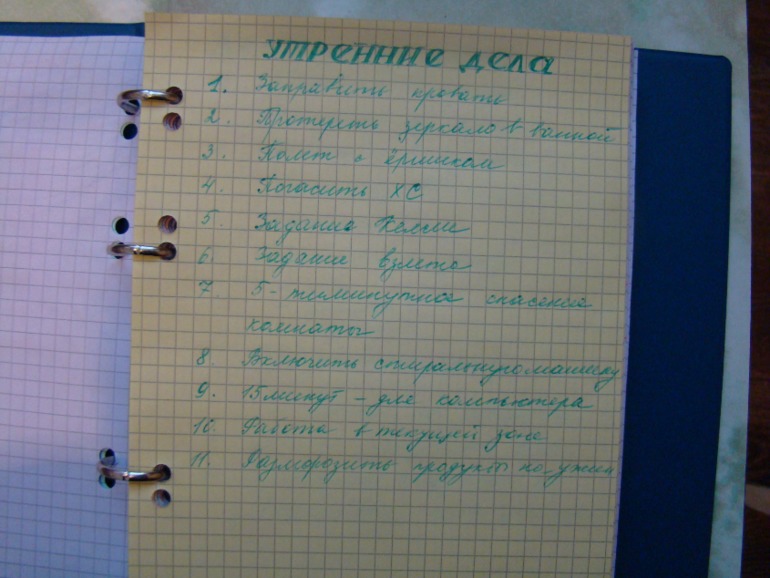 УТРЕННИЕ ДЕЛА
1. Заправить кровать
2. Протереть зеркало в ванной
3. Полёт с ёршиком
4. Погасить ХС
5. Задание Келли
6. Задание взлёта
7. 5-тиминутное спасение
комнаты
8. Включить стиральную машинку
9. 15 минут - для компьютера
10. Работа в текущей зоне
11. Разморозить продукты на ужин